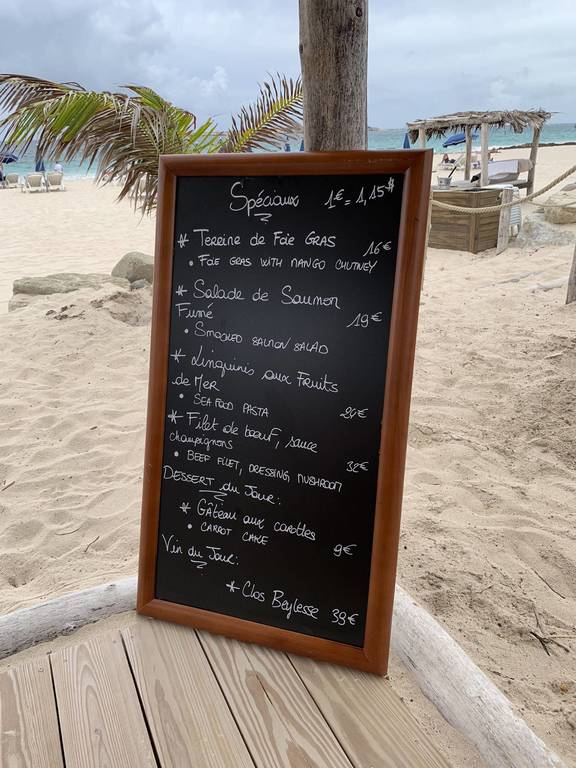 Spéciaux 1€ = 1,15$
* Terrine de Foie GRAS 16€
• FOIE GRAS WITH MANGO CHUTNEY
* Salade de Saumon
Fumé 19€
• SMOCKED SALMON SALAD
* Linguinis aux Fruits
de MER
• SEA FOOD PASTA 24€
* Filet de bœuf, sauce
champignons 32€
• BEEF FILET, DRESSING MUSHROOM
DESSERT du Jour:
* Gâteau aux carottes
• CARROT CAKE 9€
Vin du Jour:
* Clos Beylesse 39€